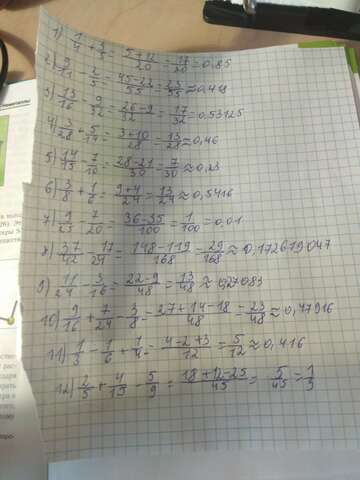 1) 1/4 + 3/5 = 5+12/20 = 17/20 = 0,85
2) 9/11 - 2/5 = 45-22/55 = 23/55 ≈ 0,418
3) 13/16 - 9/32 = 26-9/32 = 17/32 = 0,53125
4) 3/28 + 5/14 = 3+10/28 = 13/28 ≈ 0,46
5) 14/15 - 7/10 = 28-21/30 = 7/30 ≈ 0,23
6) 3/8 + 1/6 = 9+4/24 = 13/24 ≈ 0,5416
7) 9/25 - 7/20 = 36-35/100 = 1/100 = 0,01
8) 37/42 - 17/24 = 148-119/168 = 29/168 ≈ 0,172619047
9) 11/24 - 3/16 = 22-9/48 = 13/48 ≈ 0,27083
10) 9/16 + 7/24 - 3/8 = 27+14-18/48 = 23/48 ≈ 0,47916
11) 1/3 - 1/6 + 1/4 = 4-2+3/12 = 5/12 ≈ 0,416
12) 2/5 + 4/15 - 5/9 = 18+12-25/45 = 5/45 = 1/9